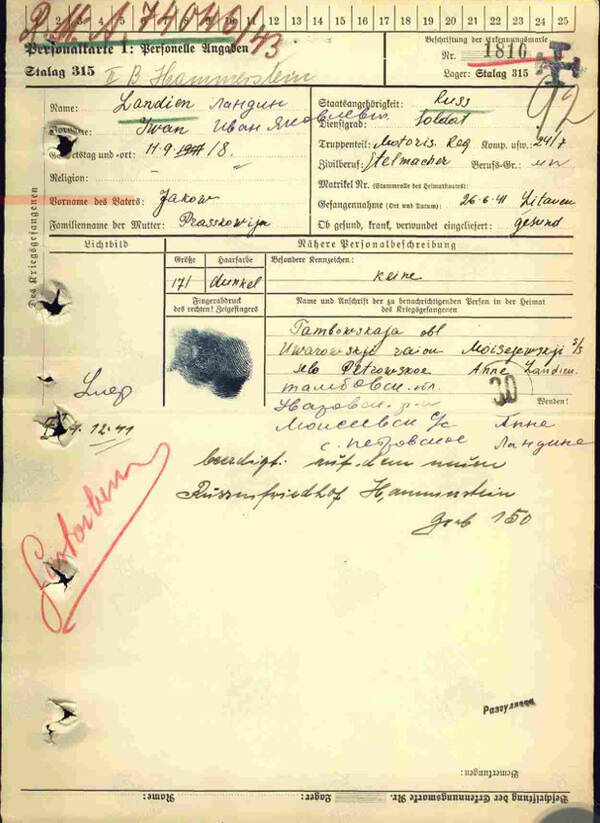 2 3 4 5 6 7 8 9 10 11 12 13 14 15 16 17 18 19 20 21 22 23 24 25
Personalkarte I: Personelle Angaben
Beschriftung der Erkennungsmarke
Nr. 1810
Stalag 315 II B Hammerstein
Lager: Stalag 315
92
Des Kriegsgefangenen
Name: Landien Ландин
Staatsangehörigkeit: Russ
Vorname: Iwan Иван Яковлевич
Dienstgrad: Soldat
Truppenteil: Motoris. Reg Komp. usw.: 24/7
Geburtstag und -ort: 11.9.
Zivilberuf: Stelmacher Berufs-Gr.:
Religion:
Matrikel Nr. (Stammrolle des Heimatstaates):
Vorname des Vaters: Jakow
Gefangennahme (Ort und Datum): 26.6.41 Litauen
Familienname der Mutter: Praskowija
Ob gesund, krank, verwundet eingeliefert: gesund
Lichtbild
Nähere Personalbeschreibung
Größe Haarfarbe Besondere Kennzeichen:
171 dunkel keine
Fingerabdruck
des rechten! Zeigefingers
Name und Anschrift der zu benachrichtigenden Person in der Heimat
des Kriegsgefangenen
Tambowskaja obl
Uwarowskji raion Moisejewskji s/s
Petrowskoe Anne Landien
30
Wenden!
Тамбовск. обл.
Моисеевск с/с Анне
с. Петровское Ландиной
Умер
12.41
beerdigt: auf dem neuen
Russenfriedhof Hammerstein
Grab 150
Gestorben
Разгуляева
Bemerkungen:
Beschriftung der Erkennungsmarke Nr. Lager: Name: